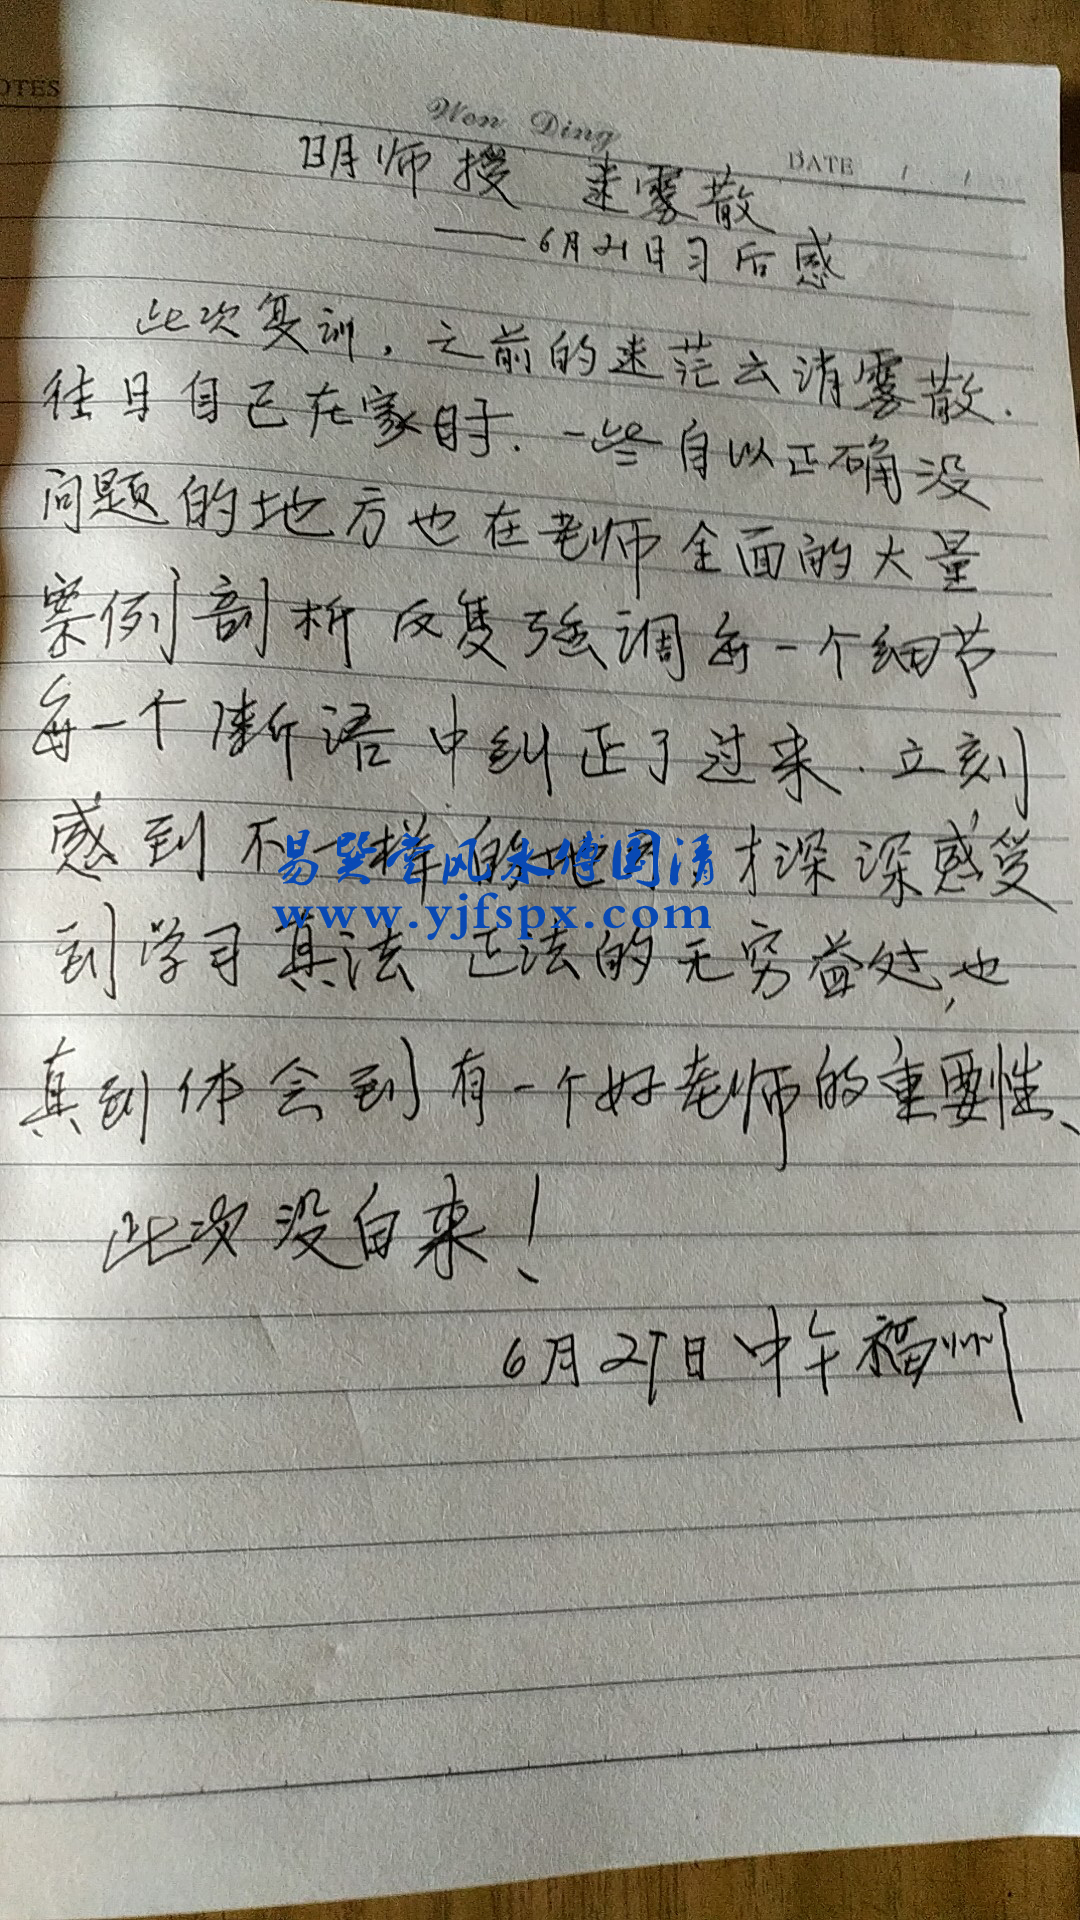 NOTES
Wen Ding
DATE / /
明师授 迷雾散
——6月21日习后感
此次复训，之前的迷茫云消雾散.
往日自己在家时.一些自以正确没
问题的地方也在老师全面的大量
案例剖析反复强调每一个细节
每一个断语中纠正了过来.立刻
感到不一样的地 才深深感受
易 堂风水 国清
www.yjfspx.com
到学习真法正法的无穷益处,也
真到体会到有一个好老师的重要性、
此次没白来!
6月 日中午福州